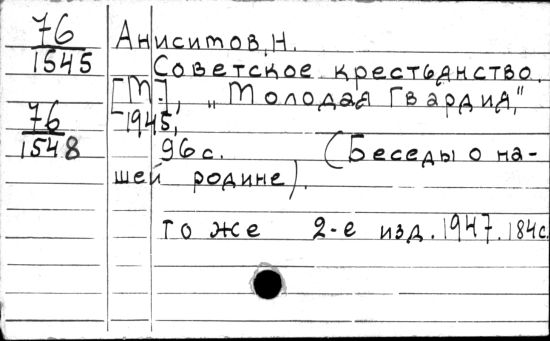 76
1545
Анисимов, Н.
Советское крестьянство.
[М.], „Молодая Гвардия,"
1945,
76
1548
96 с. (Беседы о на-
шей родине).
То же 2-е изд. 1947. 184 с.